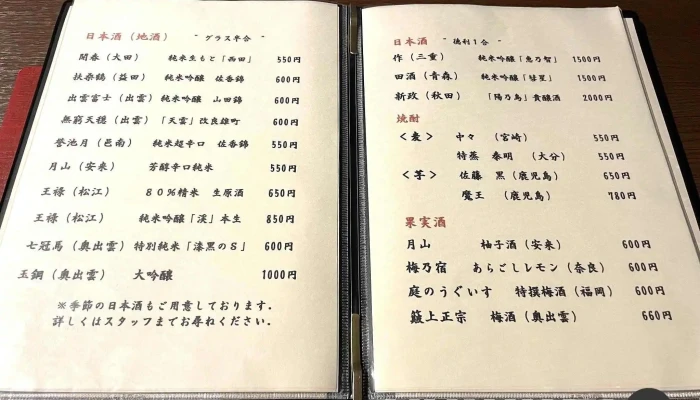 日本酒(地酒) ～ グラス半合 ～
開春(大田) 純米生もと「西田」 550円
扶桑鶴(益田) 純米吟醸 佐香錦 600円
出雲富士(出雲) 純米吟醸 山田錦 600円
無窮天穏(出雲)「天雲」改良雄町 600円
誉池月(邑南) 純米超辛口 佐香錦 550円
月山(安来) 芳醇辛口純米 550円
王禄(松江) 80%精米 生原酒 650円
王禄(松江) 純米吟醸「渓」本生 850円
七冠馬(奥出雲) 特別純米「漆黒のS」 600円
玉鋼(奥出雲) 大吟醸 1000円
※季節の日本酒もご用意しております.
詳しくはスタッフまでお尋ねください.
日本酒 ～ 徳利1合 ～
作(三重) 純米吟醸「恵乃智」 1500円
田酒(青森) 純米吟醸「彗星」 1500円
新政(秋田) 「陽乃鳥」貴醸酒 2000円
焼酎
<麦> 中々 (宮崎) 550円
特蒸 泰明 (大分) 550円
<芋> 佐藤 黒(鹿児島) 650円
魔王 (鹿児島) 780円
果実酒
月山 柚子酒(安来) 600円
梅乃宿 あらごしレモン(奈良) 600円
庭のうぐいす 特撰梅酒(福岡) 600円
簸上正宗 梅酒(奥出雲) 660円